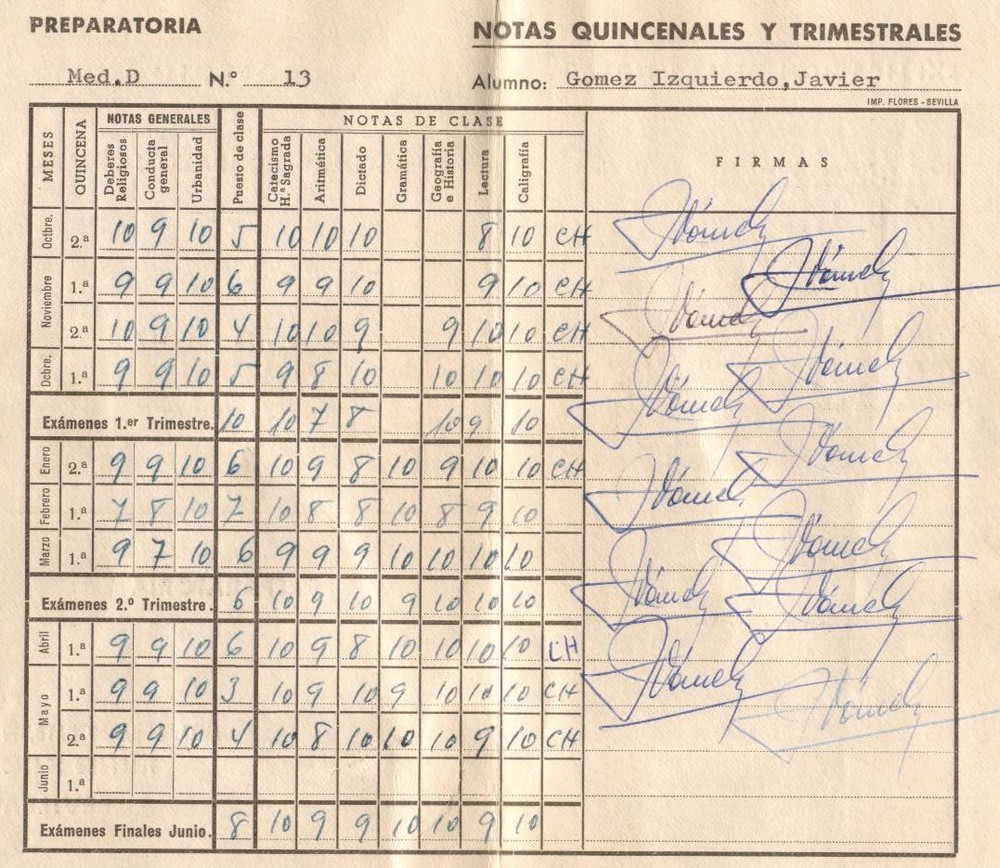 PREPARATORIA
NOTAS QUINCENALES Y TRIMESTRALES
Med.D N.º 13 Alumno: Gomez Izquierdo,Javier
IMP. FLORES - SEVILLA
MESES QUINCENA NOTAS GENERALES Puesto de clase NOTAS DE CLASE FIRMAS
Deberes Religiosos Conducta general Urbanidad Catecismo H.ª Sagrada Aritmética Dictado Gramática Geografía e Historia Lectura Caligrafía
Octbre. 2.ª 10 9 10 5 10 10 10 8 10 CH
Noviembre 1.ª 9 9 10 6 9 9 10 9 10 CH
2.ª 10 9 10 4 10 10 9 9 10 10 CH
Dcbre. 1.ª 9 9 10 5 9 8 10 10 10 10 CH
Exámenes 1.er Trimestre. 10 10 7 8 10 9 10
Enero 2.ª 9 9 10 6 10 9 8 10 9 10 10 CH
Febrero 1.ª 7 8 10 7 10 8 8 10 8 9 10
Marzo 1.ª 9 7 10 6 9 9 9 10 10 10 10
Exámenes 2.º Trimestre. 6 10 9 10 9 10 10 10
Abril 1.ª 9 9 10 6 10 9 8 10 10 10 10 CH
Mayo 1.ª 9 9 10 3 10 9 10 9 10 10 10 CH
2.ª 9 9 10 4 10 8 10 10 10 9 10 CH
Junio 1.ª
Exámenes Finales Junio. 8 10 9 9 10 10 9 10